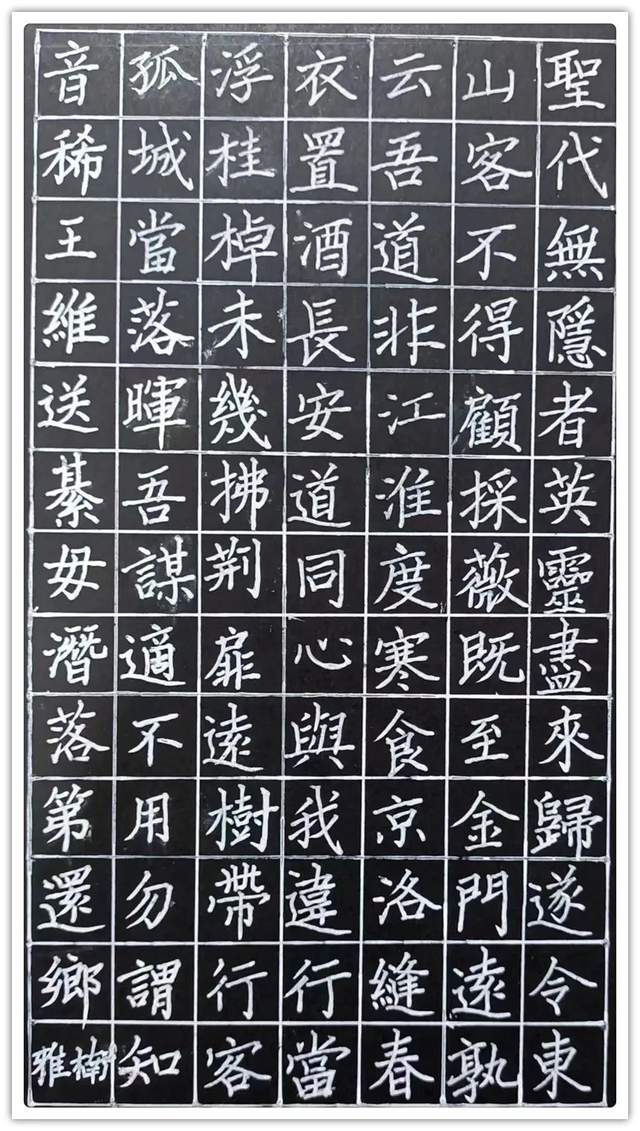 聖代無隱者英靈盡來歸遂令東
山客不得顧採薇既至金門遠孰
云吾道非江淮度寒食京洛縫春
衣置酒長安道同心與我違行當
浮桂棹未幾拂荊扉遠樹帶行客
孤城當落暉吾謀適不用勿謂知
音稀王維送綦毋潛落第還鄉雅楠